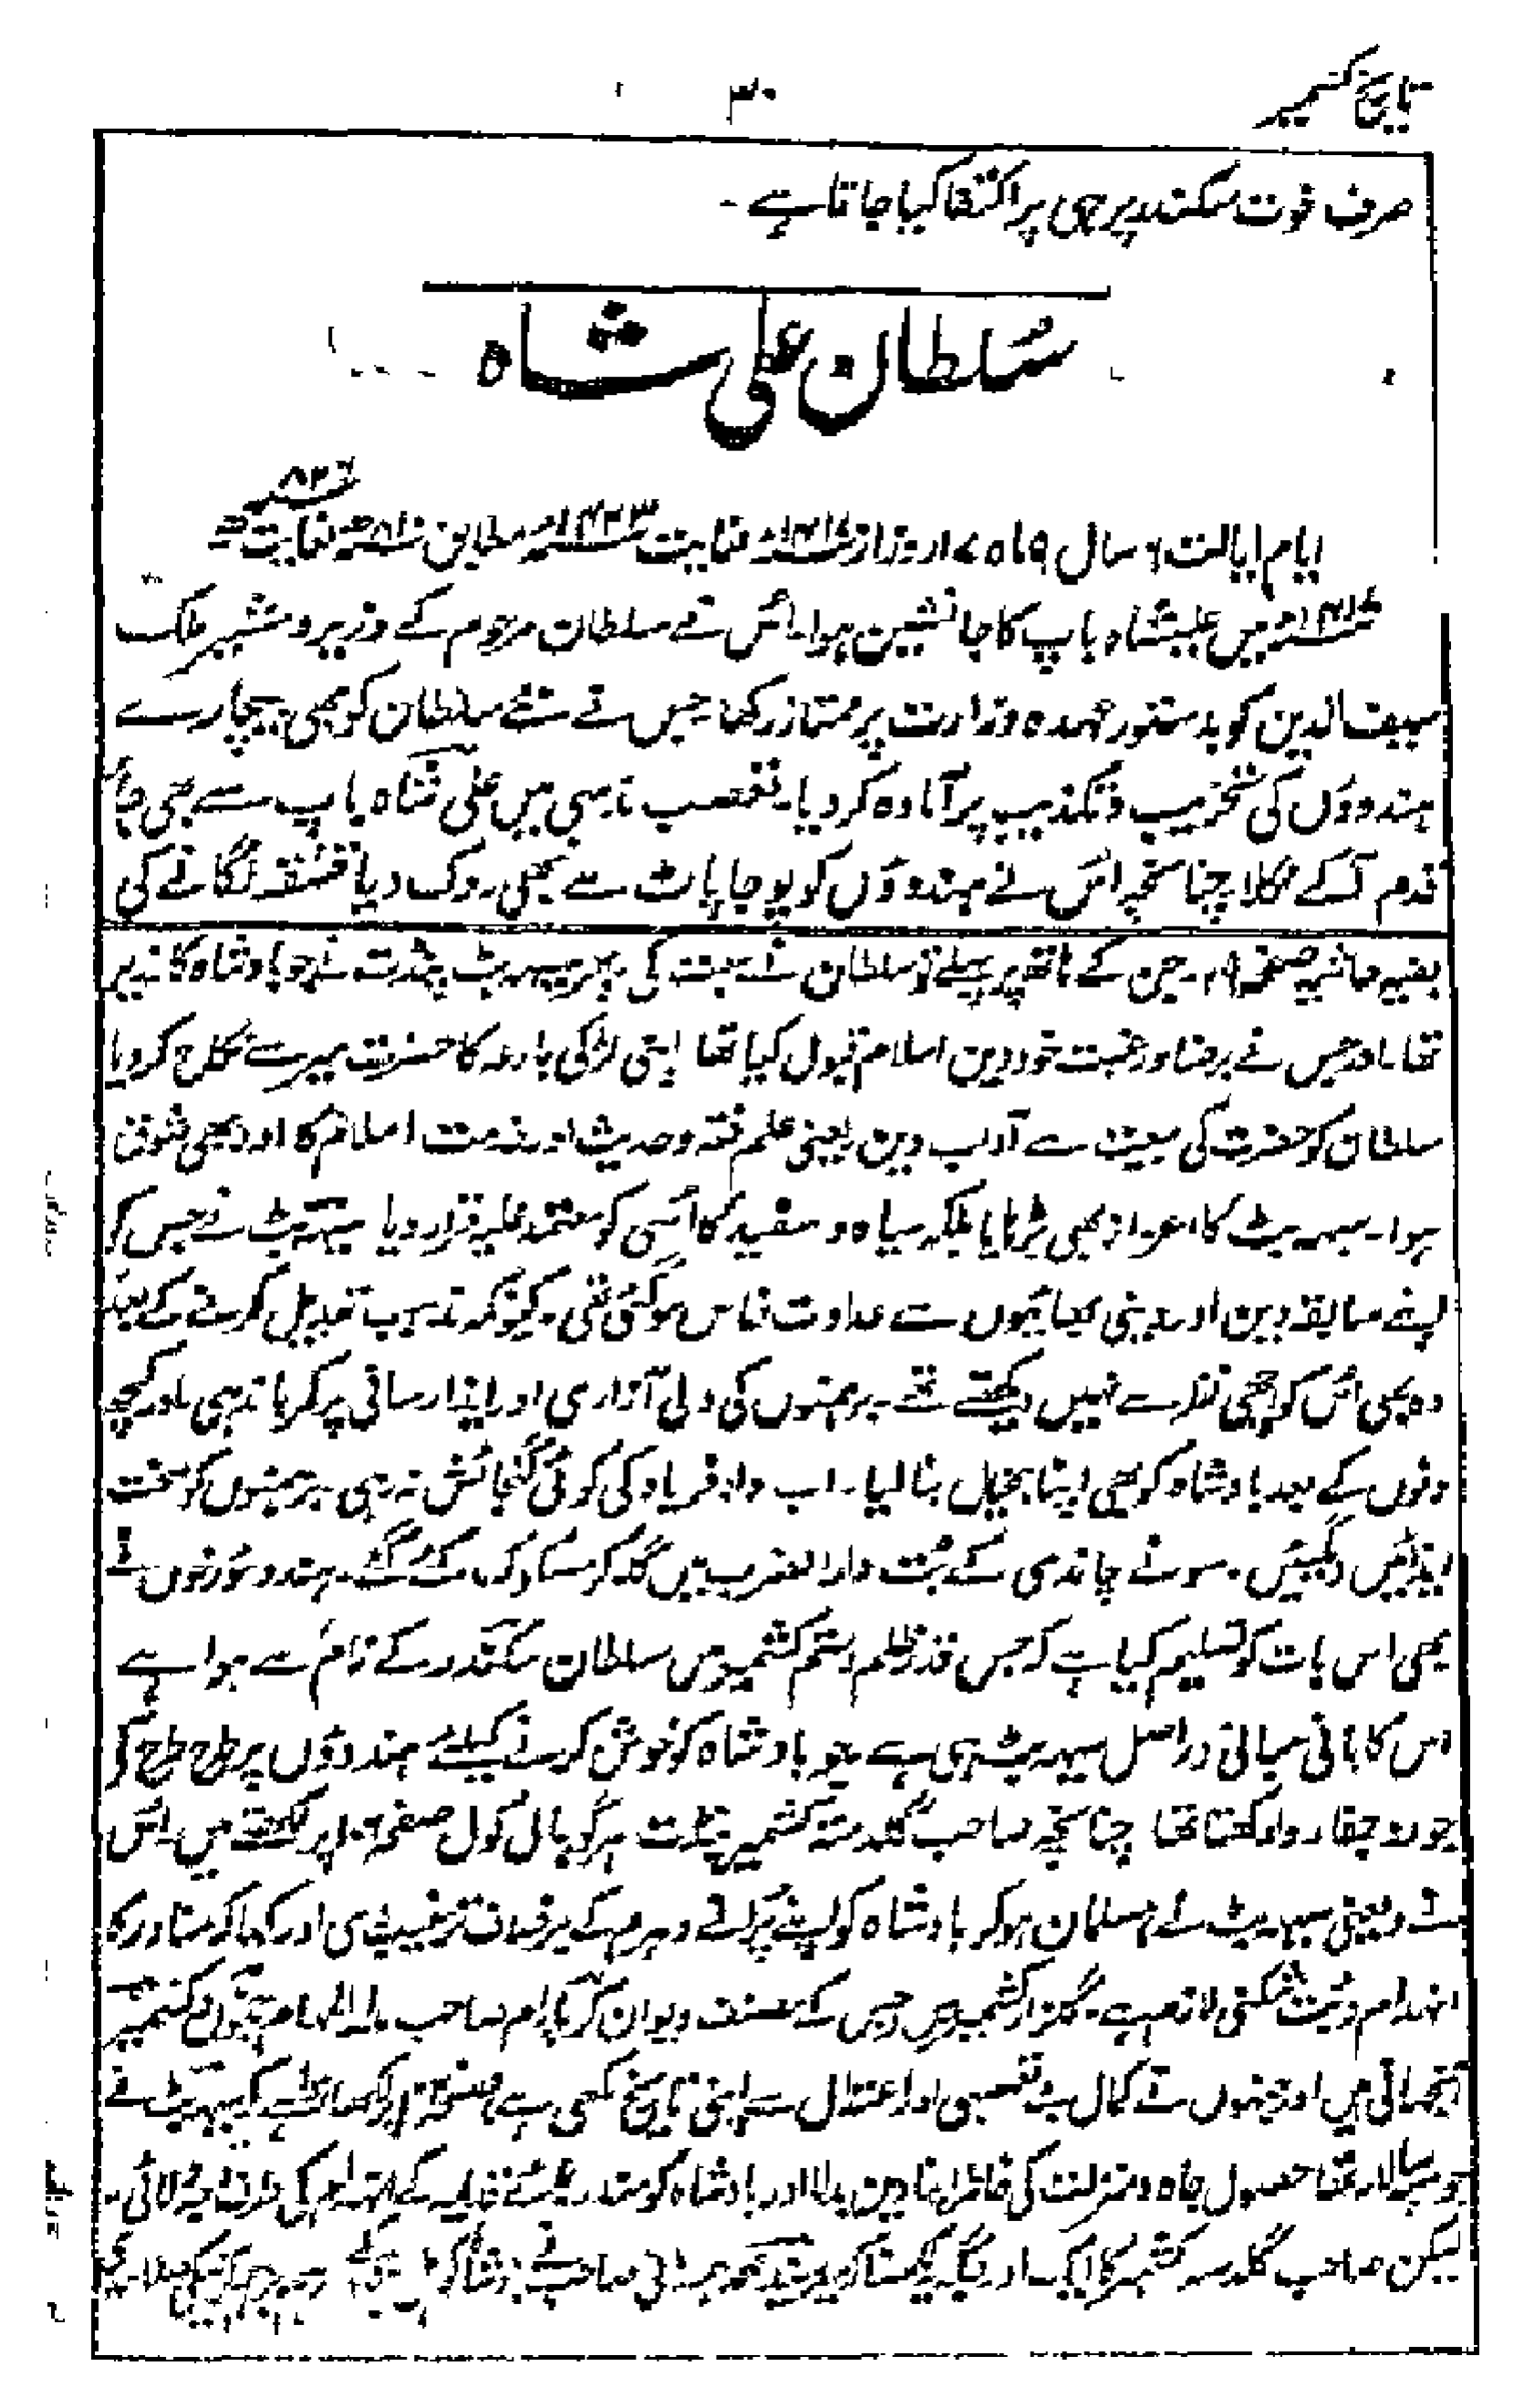 تاریخ کشمیر
۳۰
صرف فوت سکندر ہی پر اکتفا کیا جاتا ہے۔
سُلطان علی شاہ
ایام ایالت ۶ سال ۹ ماہ ۷ روز از ۱۴۱۷ء نفایت ۱۴۲۳ء مطابق نفایت ۸۲۶
۱۴۱۷ء میں علیشاہ باپ کا جانشین ہوا۔ اُس نے سلطان مرحوم کے وزیر و مشیر ملک
سیف الدین کو بدستور عہدہ وزارت پر ممتاز رکھا۔ جس نے نئے سلطان کو بھی بیچارے
ہندوؤں کی تخریب و تکذیب پر آمادہ کر دیا۔ تعصب مذہبی میں علی شاہ باپ سے بھی
قدم آگے نکلا چنانچہ اُس نے ہندوؤں کو پوجا پاٹ سے بھی روک دیا قشقہ لگانے کی
بقیہ حاشیہ صفحہ ۲۹۔ جن کے ہاتھ پر پہلے تو سلطان نے بیعت کی پھر سیہہ بٹ پنڈت نے جو بادشاہ کا
تھا۔ اور جس نے برضا و رغبت خود دین اسلام قبول کیا تھا اپنی لڑکی کا حضرت میر سے نکاح کر دیا
سلطان کو حضرت کی معیت سے آداب دین یعنی علم فقہ و حدیث اور خدمت اسلام کا اور بھی شوق
ہوا۔ سیہہ بٹ کا اعزاز بھی بڑھایا بلکہ سیاہ و سفید کا اُسی کو معتمد علیہ قرار دیا سیہہ بٹ نے جس کو
اپنے سابقہ دین اور دینی بھائیوں سے عداوت خاص ہوگئی تھی۔ کیونکہ مذہب تبدیل کرنے کے بعد
وہ بھی اُس کو اچھی نظر سے نہیں دیکھتے تھے۔ برہمنوں کی دل آزاری اور ایذا رسانی پر کمر باندھی۔ اور کچھ
دنوں کے بعد بادشاہ کو بھی اپنا ہمخیال بنا لیا۔ اب داد فریاد کی کوئی گنجائش نہ رہی۔ برہمنوں کو سخت
ایذائیں دی گئیں۔ سونے چاندی کے بُت دارالضرب میں گلا کر مسکوک کئے گئے۔ ہندو مورخوں نے
بھی اس بات کو تسلیم کیا ہے کہ جس قدر ظلم و ستم کشمیر میں سلطان سکندر کے نام سے ہوا ہے
اس کا بانی مبانی دراصل سیہہ بٹ ہی ہے جو بادشاہ کو خوش کرنے کیلئے ہندوؤں پر طرح طرح کی
جور و جفا روا رکھتا تھا چنانچہ صاحب گلدستہ کشمیر پنڈت ہرگوپال کول صفحہ ۱۰۶ پر لکھتے ہیں۔ اُس
نے (یعنی سیہہ بٹ نے) مسلمان ہو کر بادشاہ کو اپنے پُرانے دہرم کے برخلاف ترغیب دی اور کہا کہ منادر کا
انہدام و بُت شکنی لازم ہے۔ گلزار کشمیر میں جس کے مصنف دیوان کرپا رام صاحب مدارالمہام جموں و کشمیر
آنجہانی ہیں اور جنہوں نے کمال بے تعصبی اور اعتدال سے اپنی تاریخ لکھی ہے صفحہ پر لکھا ہے کہ سیہہ بٹ نے
جو سپہ سالار تھا حصول جاہ و منزلت کی خاطر اپنا دین بدلا اور بادشاہ کو مندر ہائے قدیمہ کے انہدام کی طرف توجہ دلائی۔
لیکن صاحب گلدستہ کشمیر کا ایک اور جگہ یہ لکھنا کہ میر سید محمد ہمدانی صاحب نے بادشاہ کو